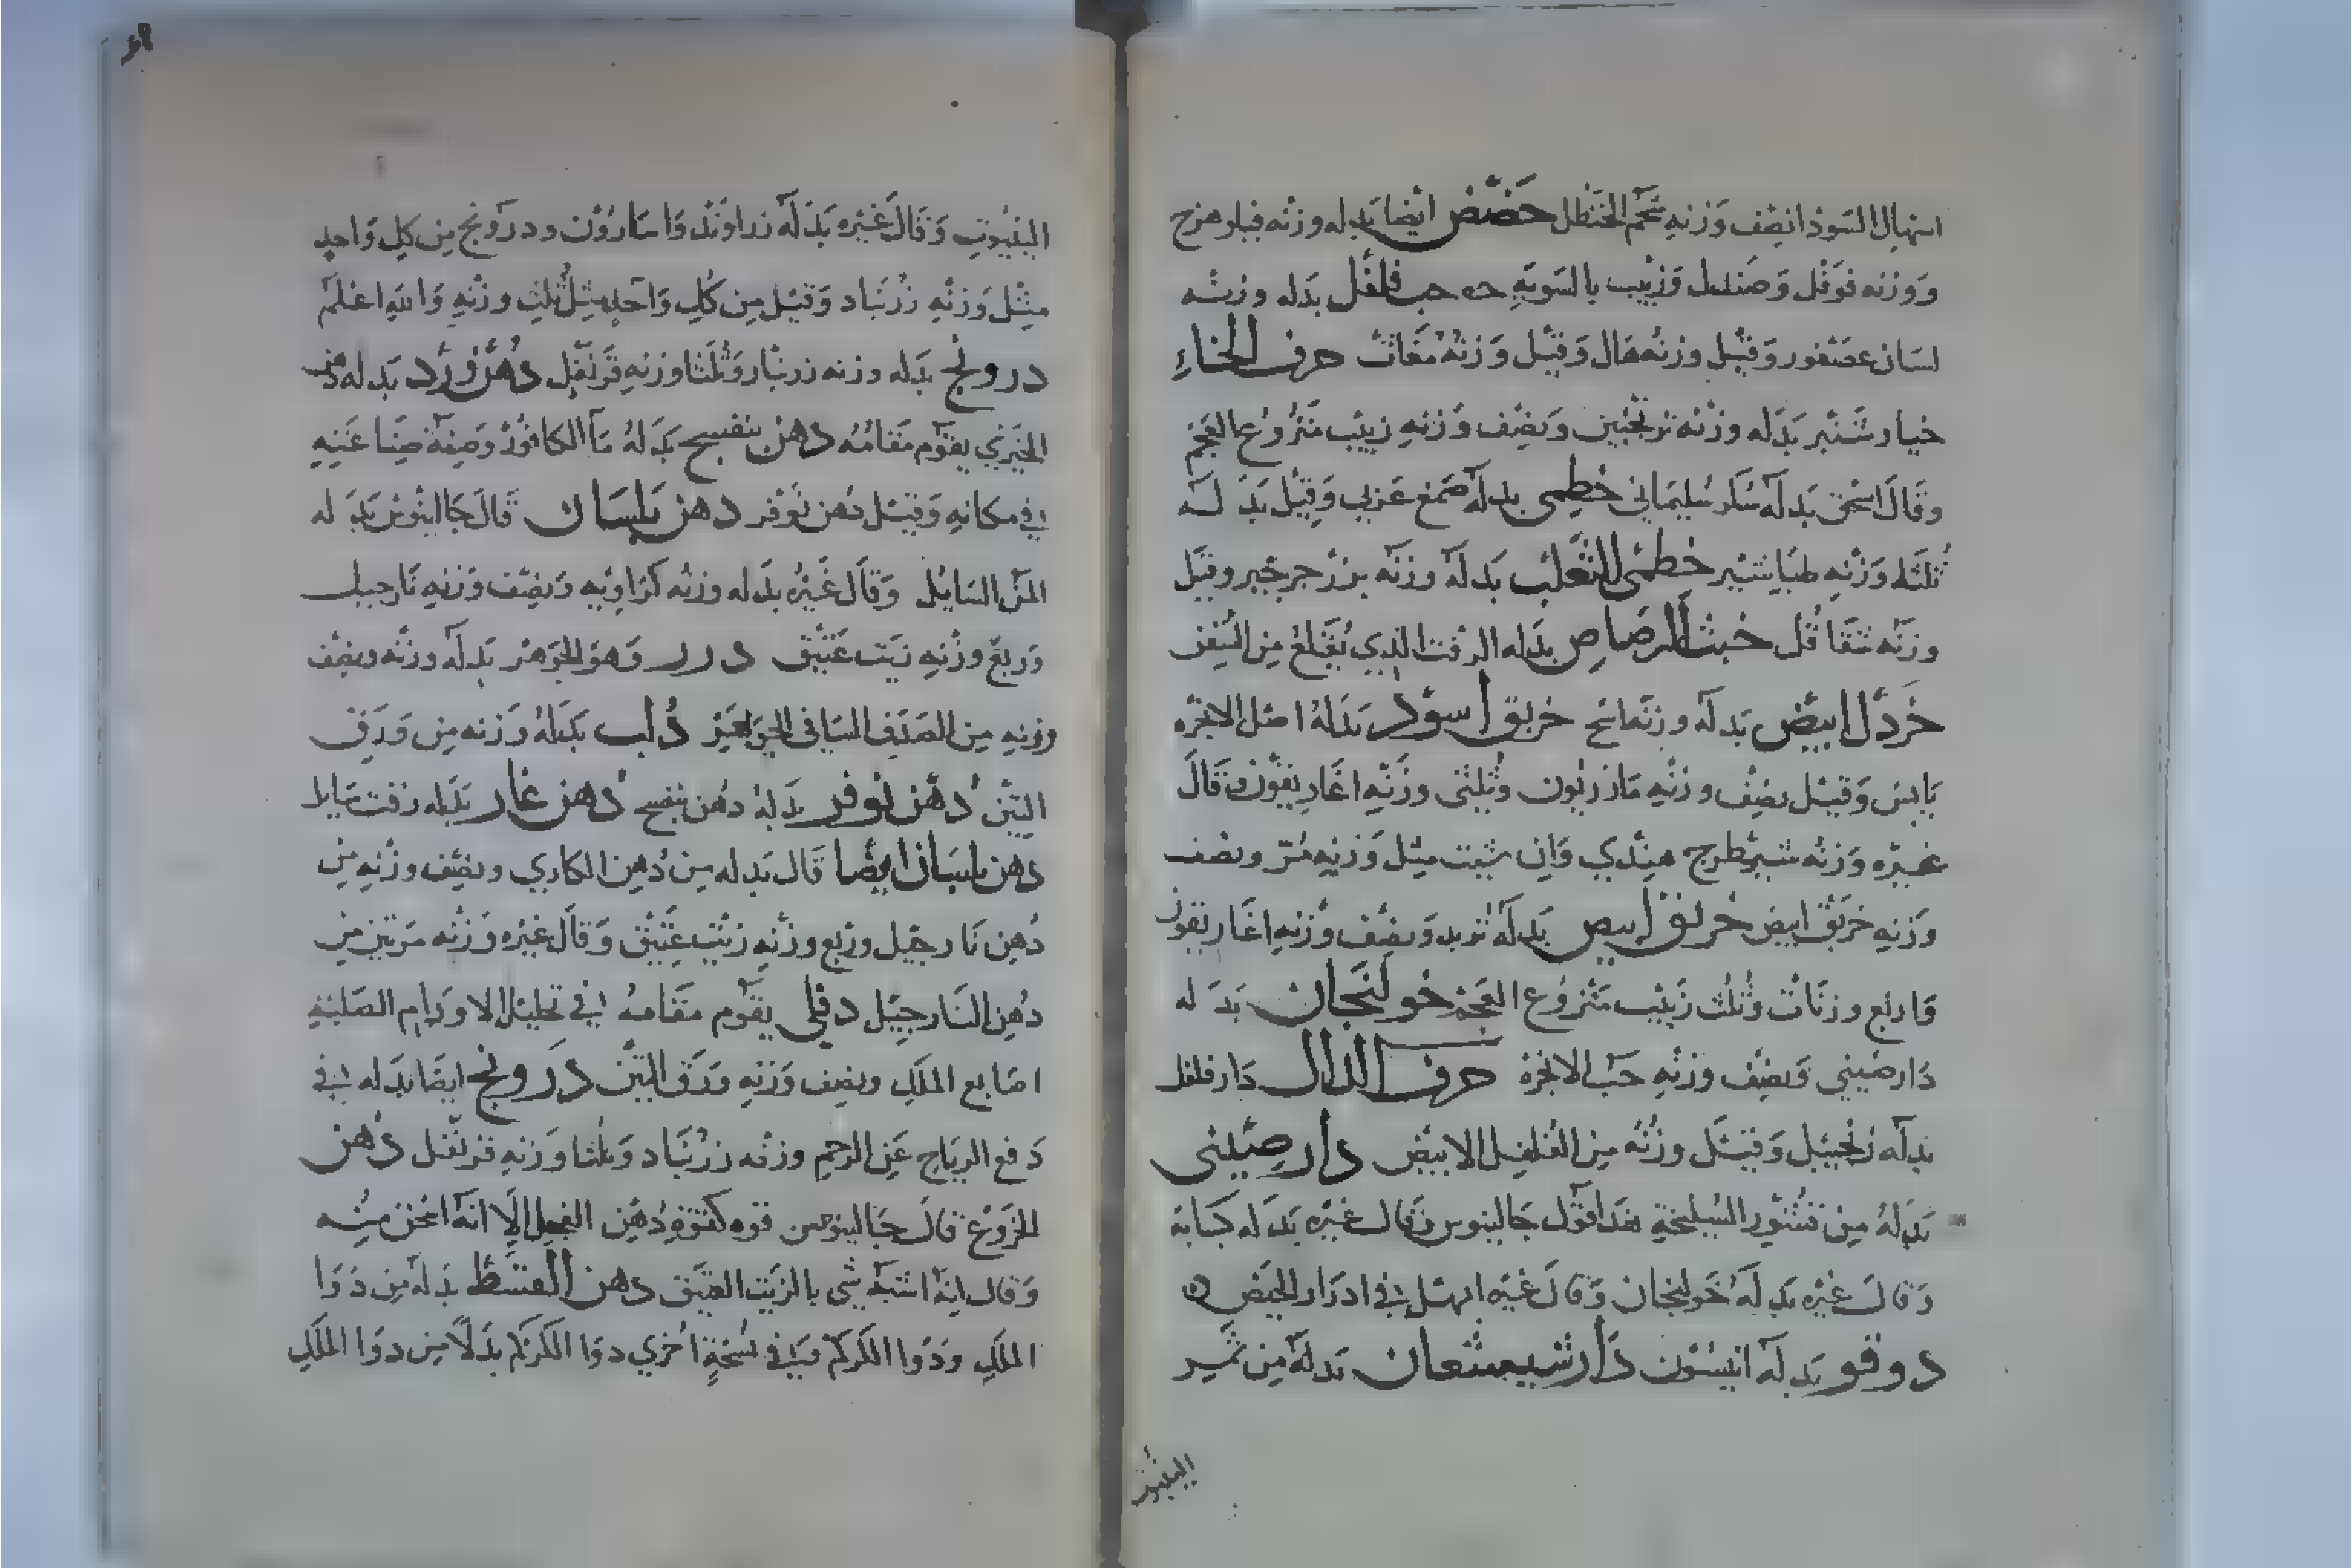 اسهال السودا نصف وزنه شحم الحنظل حضض ايضا بدله وزنه فيلزهرج
ووزنه فوفل وصندل وزبيب بالسوية حب فلفل بدله وزنه
لسان عصفور وقيل وزنه هال وقيل وزنه مغاث حرف الخاء
خيار شنبر بدله وزنه ترنجبين ونصف وزنه زبيب منزوع العجم
وقال اسحق بدله سكر سليماني خطمي بدله صمغ عربي وقيل بدله
ثلثا وزنه طباشير خطمى الثعلب بدله وزنه بزر جرجير وقيل
وزنه شقاقل خبث الرصاص بدله الزفت الذي يقلع من السفن
خردل ابيض بدله وزنه خربق اسود بدله اصل الانجره
يابس وقيل نصف وزنه مازريون وثلثى وزنه اغاريقون وقال
غيره وزنه شيطرج هندي وان شيت مثل وزنه مر ونصف
وزنه خربق ابيض خربق ابيض بدله تربد ونصف وزنه اغاريقون
واربع وزنات وثلث زبيب منزوع العجم خولنجان بدله
دارصيني ونصف وزنه حب الانجره حرف الدال دار فلفل
بدله زنجبيل وقيل وزنه من الفلفل الابيض دار صيني
بدله من قشور السليخة هذا قول جالينوس وقال غيره بدله كبابة
وقال غيره بدله خولنجان وقال غيره ابهل في ادرار الحيض
دوقو بدله انيسون دارشيشعان بدله من ثمر
الينبوت
الينبوت وقال غيره بدله زراوند واسارون ودرونج من كل واحد
مثل وزنه زرنباد وقيل من كل واحد مثل ثلث وزنه والله اعلم
درونج بدله وزنه زرنباد وثلثا وزنه قرنفل دهن ورد بدله دهن
الخيري يقوم مقامه دهن بنفسج بدله ما الكافور وصفة صناعته
في مكانه وقيل دهن نوفر دهن بلسان قال جالينوس بدله
المر السايل وقال غيره بدله وزنه ونصف وزنه نارجيل
وربع وزنه زيت عتيق درر وهو الجوهر بدله وزنه ونصف
وزنه من الصدف دلب بدله وزنه من ورق
التين دهن نوفر بدله دهن بنفسج دهن غار بدله زفت
دهن بلسان ايضا قال بدله من دهن الكادي ونصف وزنه من
دهن نارجيل وربع وزنه زيت عتيق وقال غيره وزنه مرتين من
دهن النارجيل دفلى يقوم مقامه في تحليل الاورام الصلبة
اصابع الملك ونصف وزنه ورق التين درونج ايضا بدله في
دفع الرياح عن الرحم وزنه زرنباد وثلثا وزنه قرنفل دهن
الخروع قال جالينوس قوه كقوة دهن الفجل الا انه اسخن منه
وقال انه اشبه شي بالزيت العتيق دهن القسط بدله من دوا
الملك ودوا الكركم في نسخة اخري دوا الكركم بدلا من دوا الملك